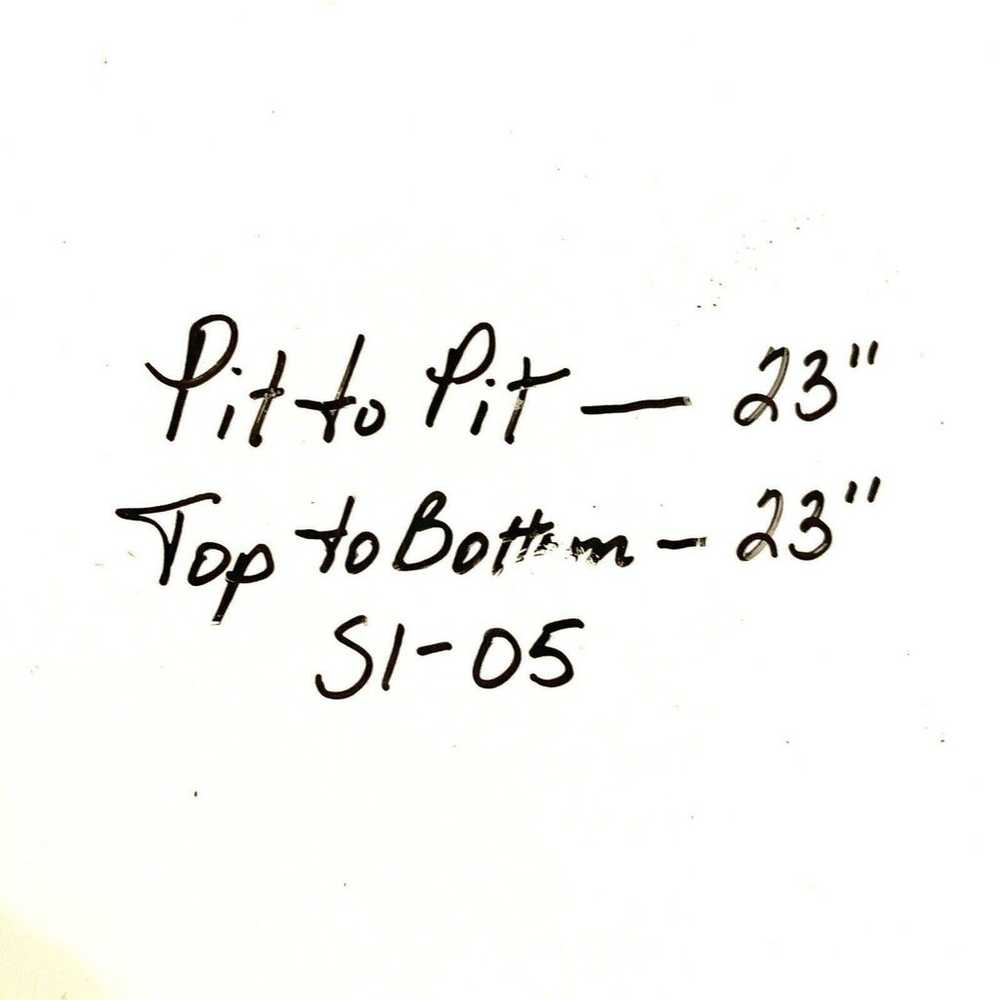 Pit to Pit — 23"
Top to Bottom - 23"
S1-05